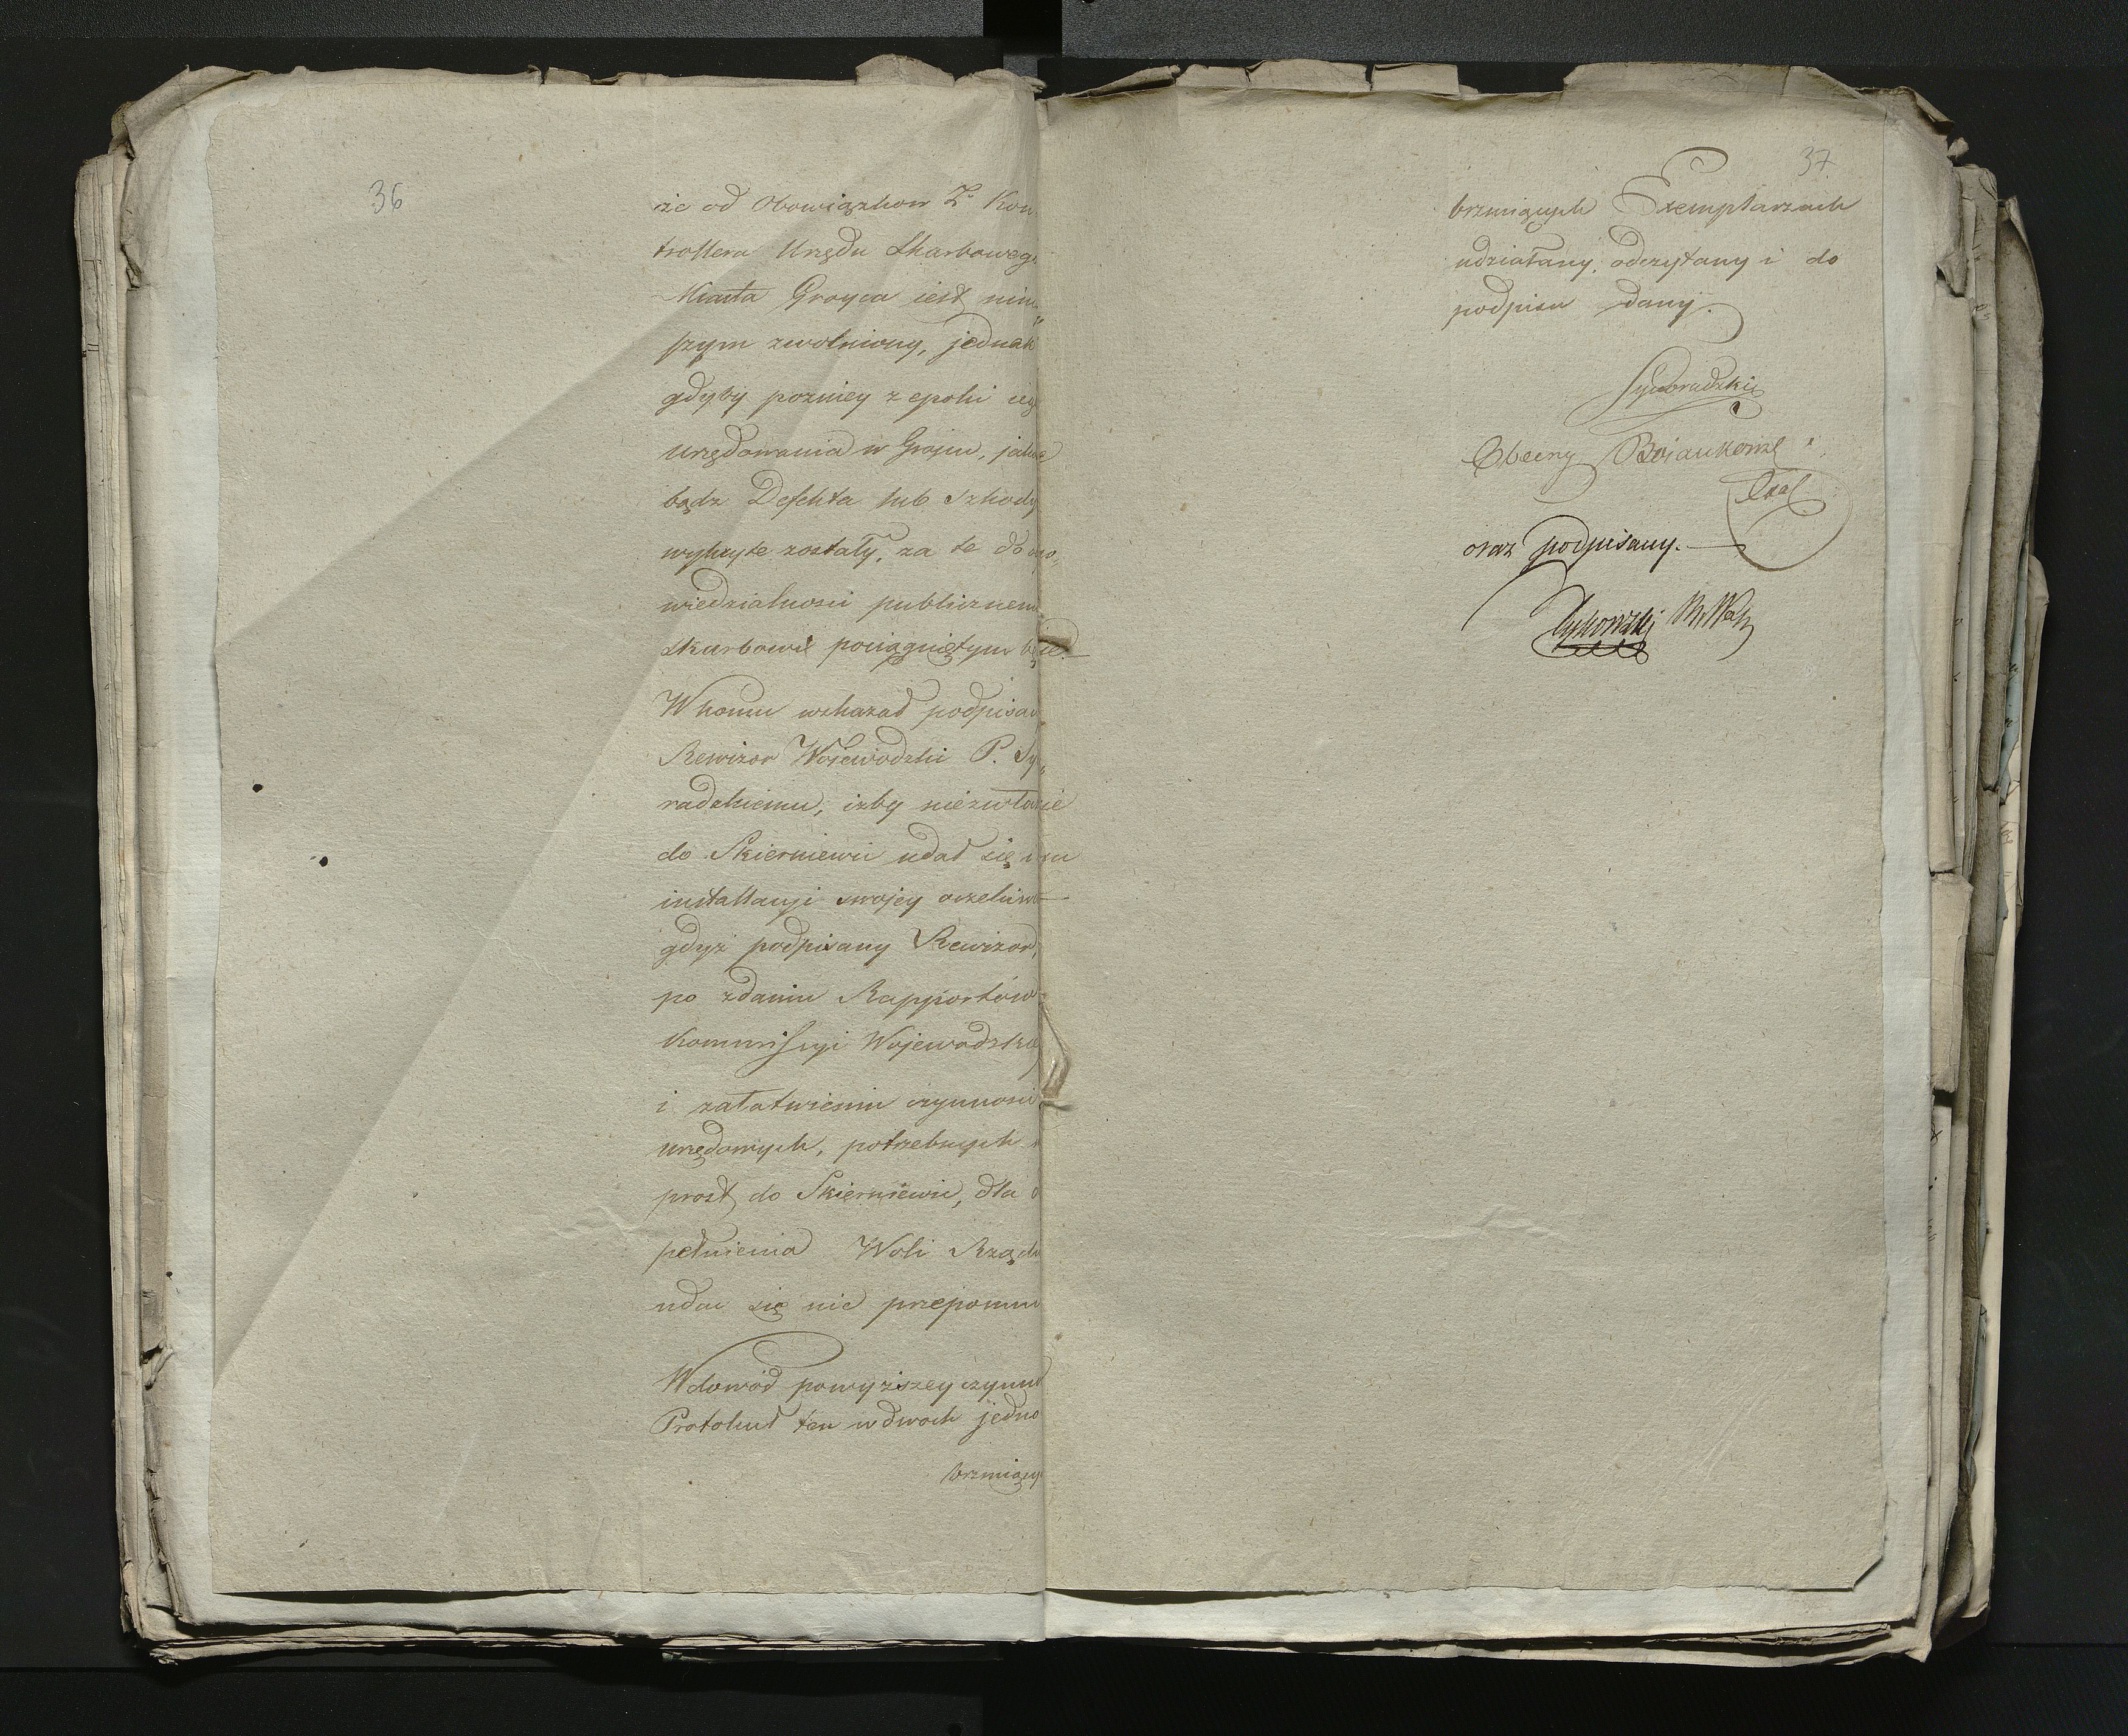 36
że od Obowiązkow Z. Kon
trollera Urzędu Skarbowego
Miasta Groyca iest nin
szym zwolniony, jednak
gdyby poźniey z epoki ieg
urzędowania w Grojcu, jakie
bądz Defekta lub Szkody
wykryte zostały, za te do
wiedzialnosci publicznem
Skarbowi pociągniętym
W końcu wskazał podpisan
Rewizor Wojewodzki P. Sy
radzkiemu, iżby niezwłocznie
do Skierniewic udał się i tam
installacyi swojey oczekiwał
gdyż podpisany Rewizor,
po zdaniu Rapportów
Kommissyi Wojewodzkiej
i załatwieniu czynnosci
urzędowych, potrzebnych
prost do Skierniewic, dla
pełnienia Woli Rządu
udac się nie przepomni
W dowód powyższey czynn
Protokuł ten w dwoch jedno
brzmiący
37
brzmiących Exemplarzach
udziałany, odczytany i do
podpisu dany.
Syradzki
Obecny Boiankowski
oraz podpisany.